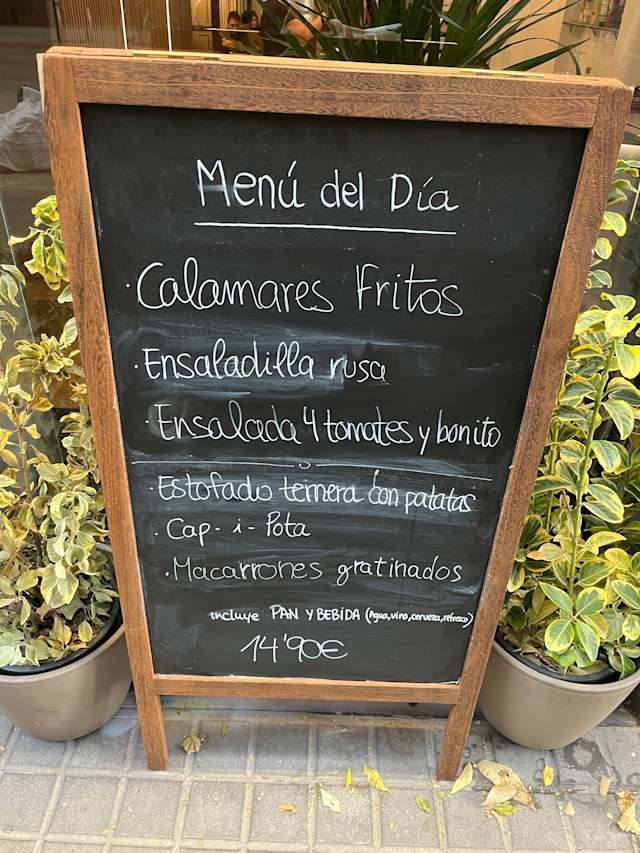 Menú del Día
· Calamares Fritos
· Ensaladilla rusa
· Ensalada 4 tomates y bonito
· Estofado ternera con patatas
· Cap - i - Pota
· Macarrones gratinados
incluye PAN Y BEBIDA (Agua, vino, cerveza, refresco)
14'90€